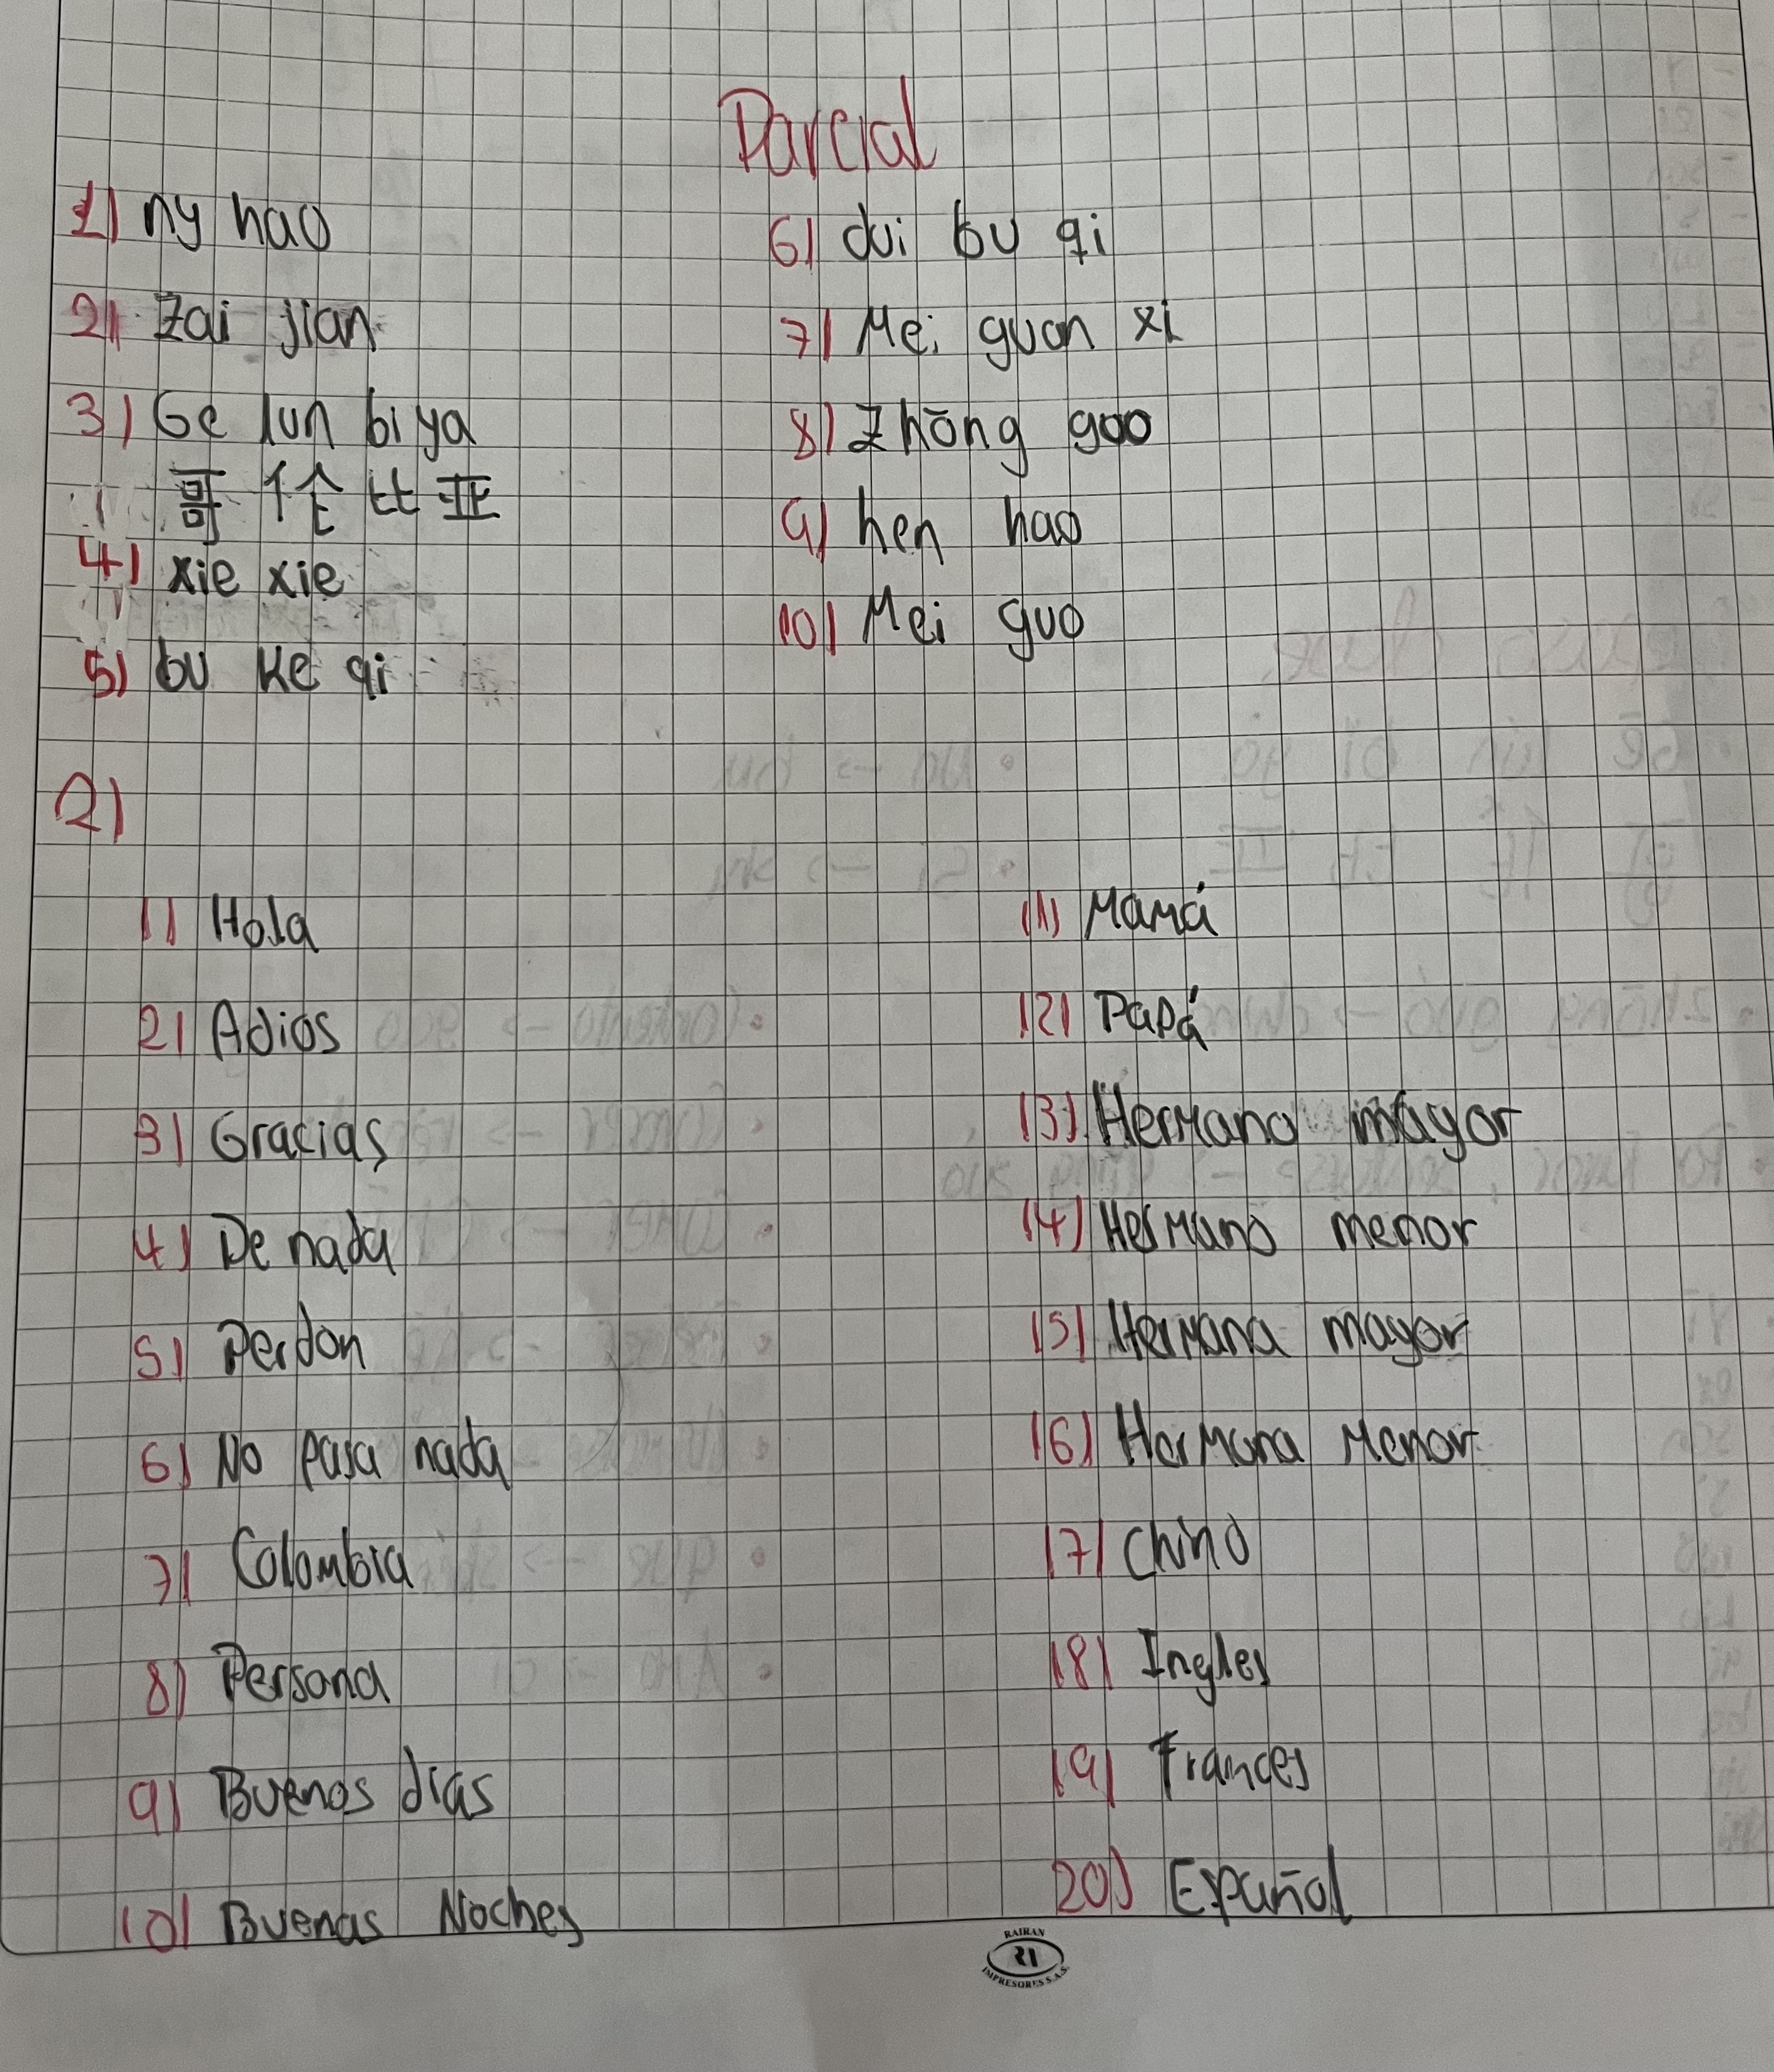 Parcial
1) ny hao
2) Zai jian
3) Ge lun bi ya
哥 伦 比 亚
4) xie xie
5) bu ke qi
6) dui bu qi
7) Mei guan xi
8) Zhōng goo
9) hen hao
10) Mei guo
2)
1) Hola
2) Adios
3) Gracias
4) De nada
5) Perdon
6) No pasa nada
7) Colombia
8) Persona
9) Buenos dias
10) Buenas Noches
11) Mamá
12) Papá
13) Hermano mayor
14) Hermano menor
15) Hermana mayor
16) Hermana Menor
17) Chino
18) Ingles
19) Frances
20) Español
RAIRAN
IMPRESORES S.A.S.